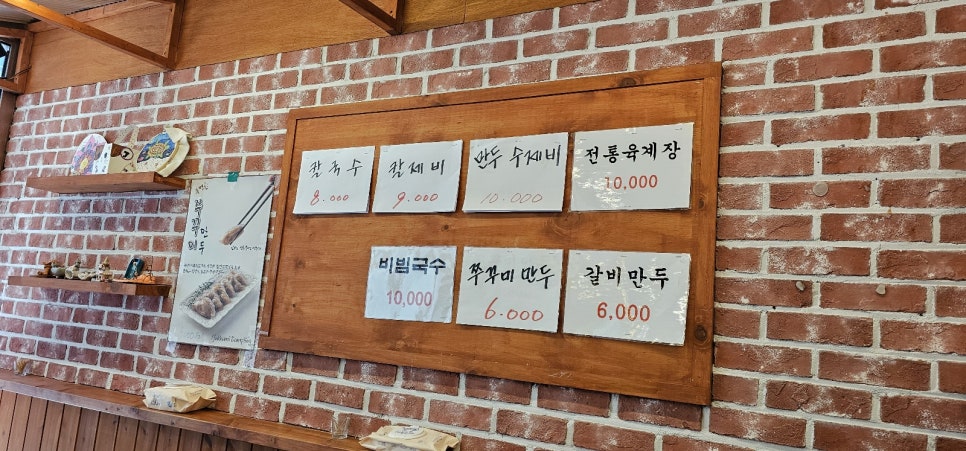 칼국수
8.000
칼제비
9.000
만두 수제비
10.000
전통육계장
10,000
비빔국수
10,000
쭈꾸미만두
6.000
갈비만두
6,000
만두